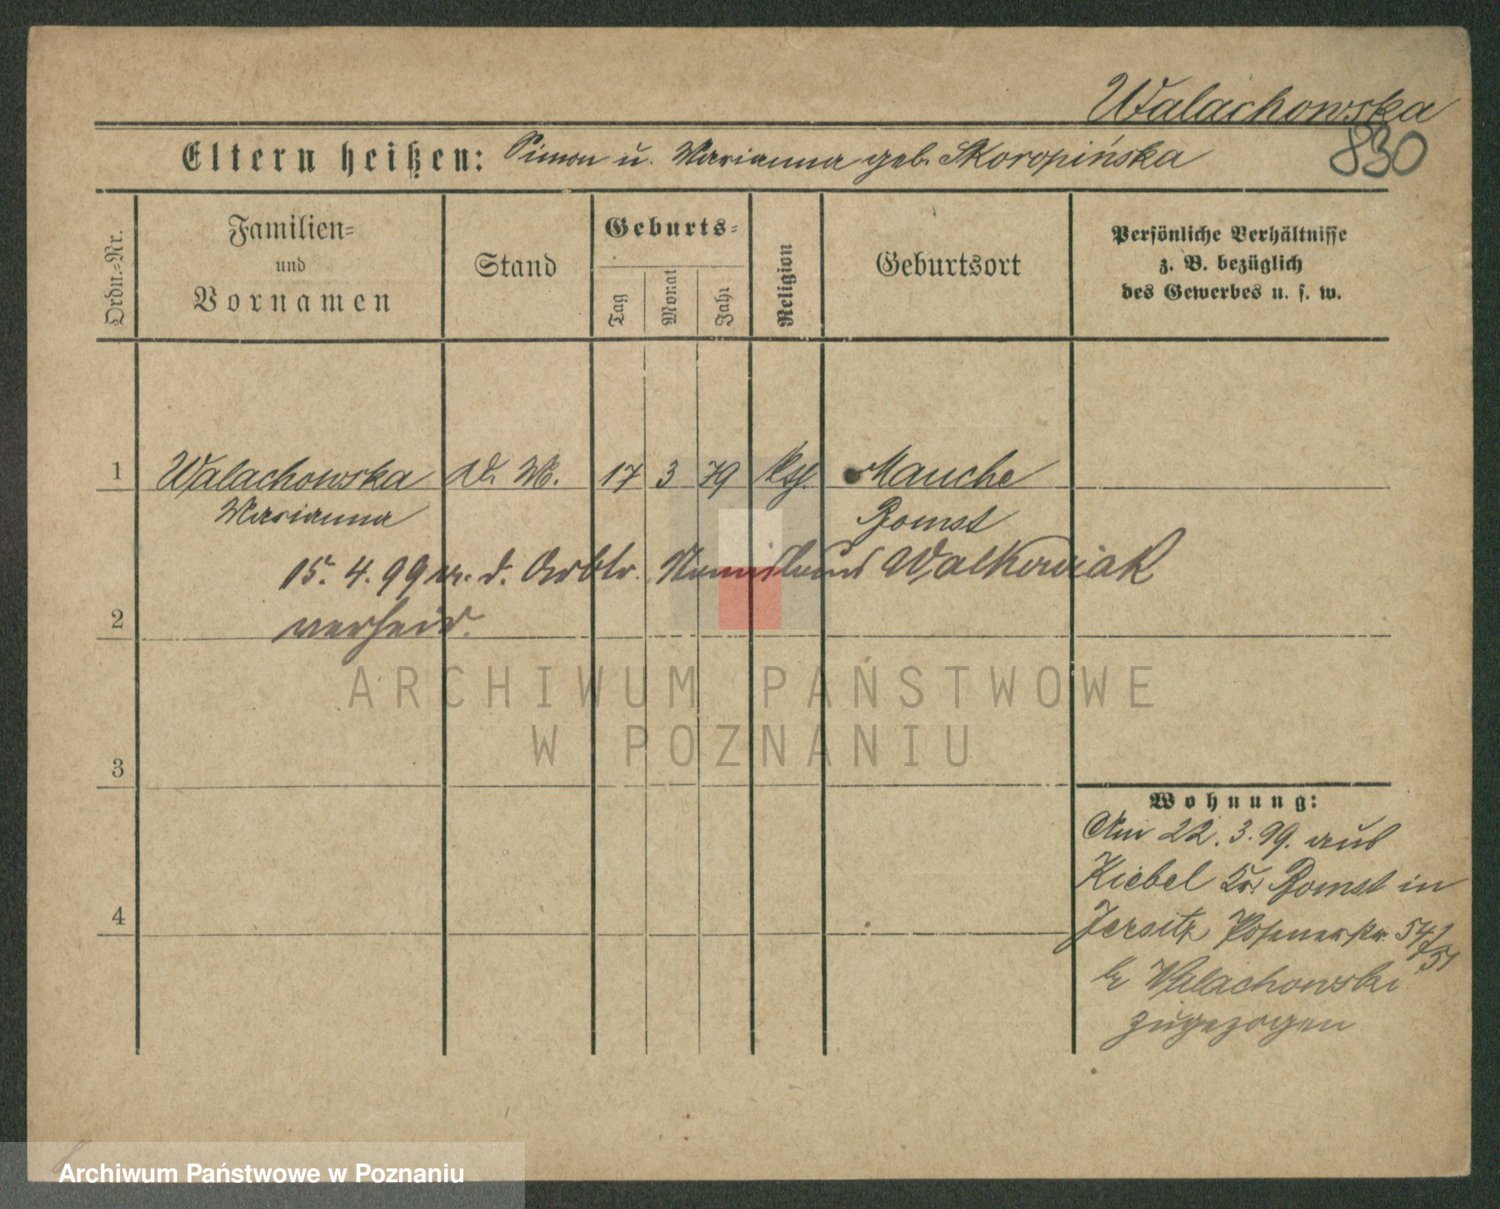 Walachowska
830
Eltern heißen: Simon u. Marianna geb. Skoropińska
Ordn.-Nr.
Familien-
und
Vornamen
Stand
Geburts-
Tag
Monat
Jahr
Religion
Geburtsort
Persönliche Verhältnisse
z. B. bezüglich
des Gewerbes u. s. w.
1 Walachowska 17 3 79 Mauche
Marianna Bomst
15. 4. 99 m. d. Arbtr. Walkowiak
2 verheir.
ARCHIWUM PAŃSTWOWE
W POZNANIU
3
Wohnung:
Am 22. 3. 99. aus
Kiebel Kr. Bomst in
4 Jersitz Posenerstr. 54
b/ Walachowski
zugezogen
Archiwum Państwowe w Poznaniu